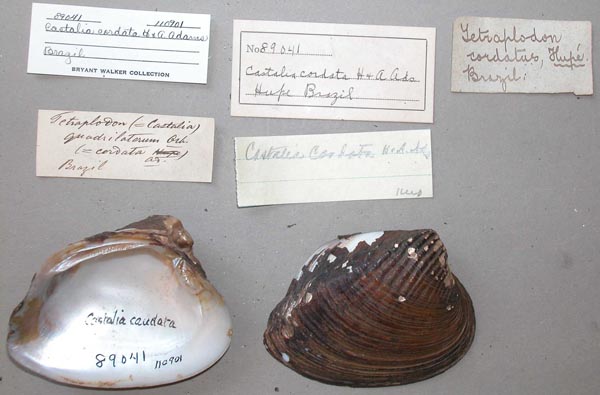 89041 110901
Castalia cordata H & A Adams
Brazil
BRYANT WALKER COLLECTION
No 89041
Castalia cordata H & A Ads
Hupe Brazil
Tetraplodon
cordatus, Hupé.
Brazil.
Tetraplodon (= Castalia)
quadrilaterum Orb.
(= cordata Hupe
ad.)
Brazil
Castalia Cordata H & A. Ad
Castalia caudata
89041 110901